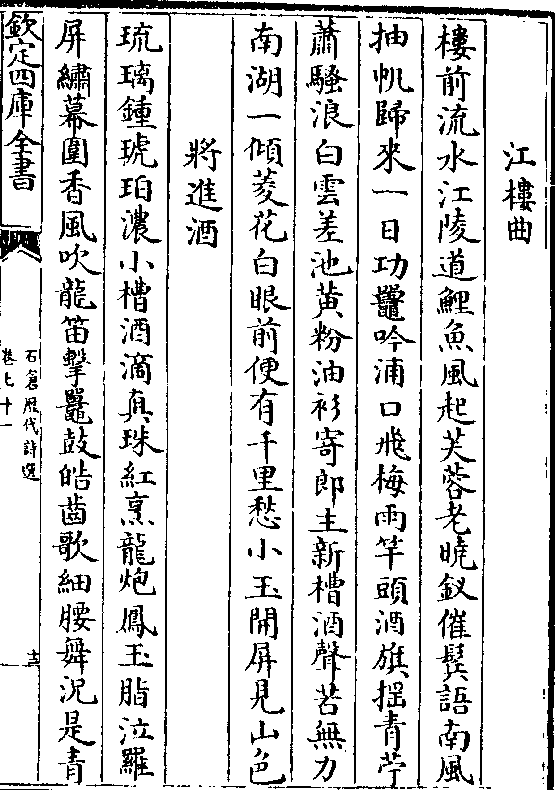 江樓曲
樓前流水江陵道鯉魚風起芙蓉老曉釵催鬂語南風
抽帆歸來一日功鼉吟浦口飛梅雨竿頭酒旗揺青苧
蕭騷浪白雲差池黄粉油衫寄郎主新槽酒聲苦無力
南湖一傾菱花白眼前便有千里愁小玉開屏見山色
將進酒
琉璃鍾琥珀濃小槽酒滴真珠紅烹龍炮鳳玉脂泣羅
屏繡幕圍香風吹龍笛擊鼉鼓皓齒歌細腰舞況是青
欽定四庫全書
石倉歴代詩選
卷七十一
十三